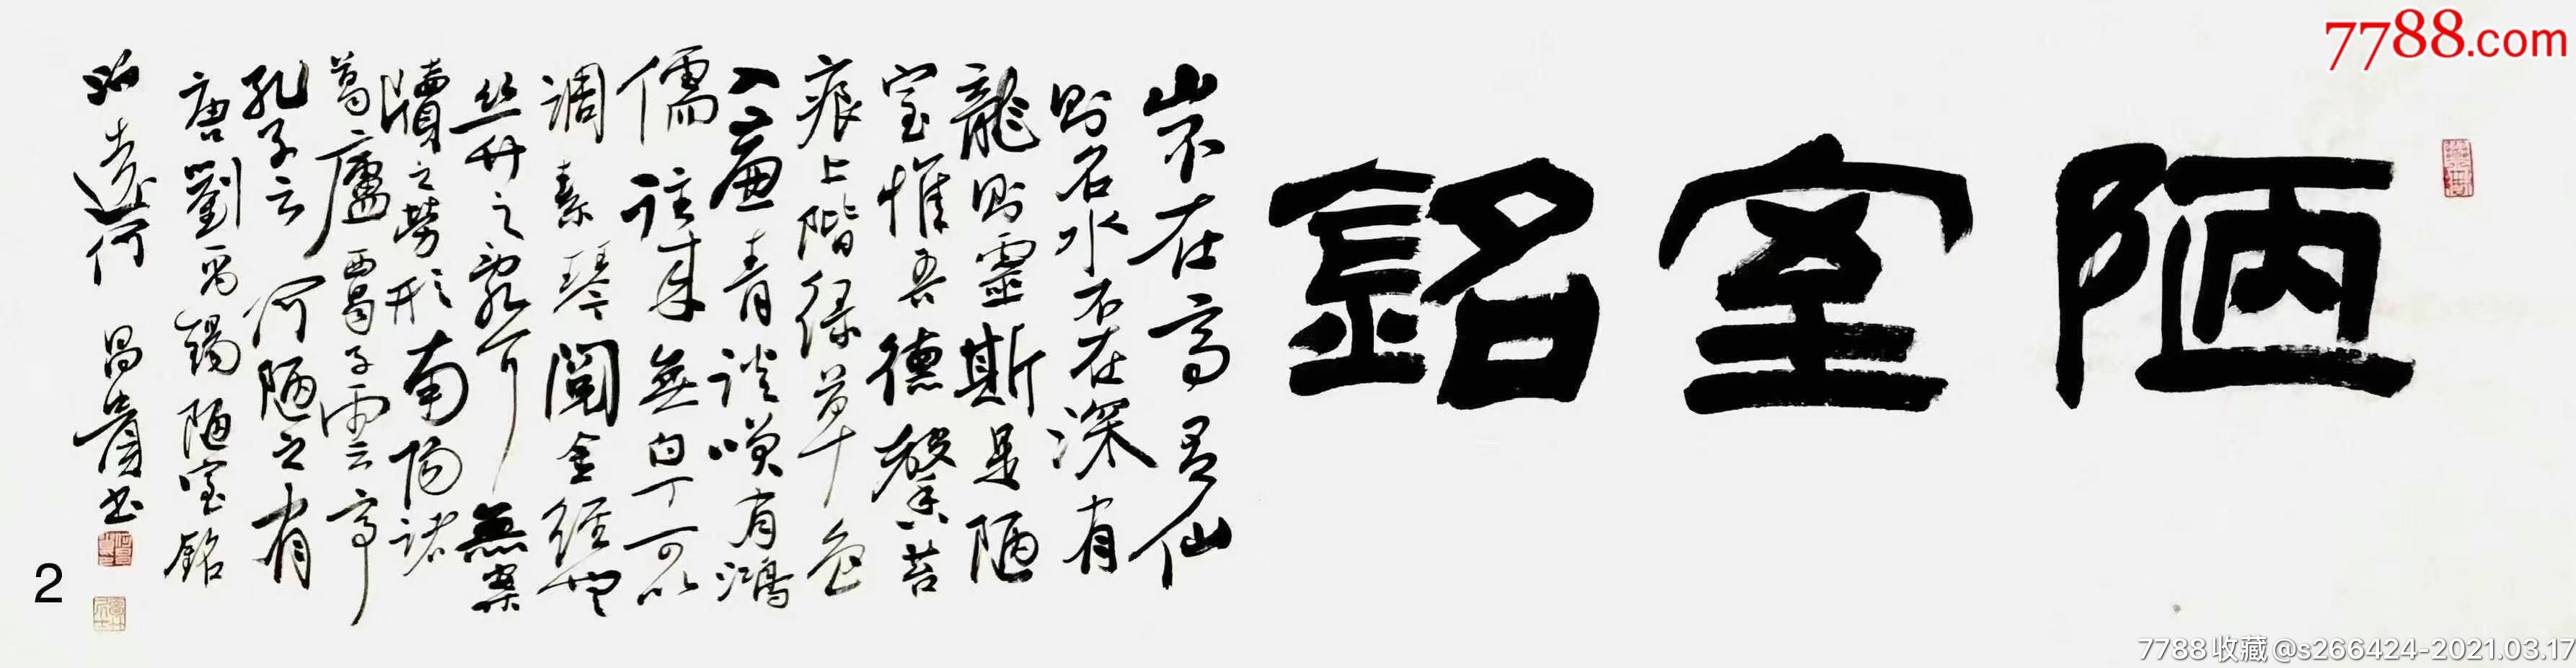 陋室銘
山不在高有仙
则名水不在深有
龍则靈斯是陋
室惟吾德馨苔
痕上階绿草色
入簾青谈笑有鸿
儒往来無白丁可以
调素琴閲金經無
丝竹之乱耳無案
牘之劳形南阳诸
葛廬西蜀子雲亭
孔子云何陋之有
唐劉禹錫陋室銘
何昌貴书
2
7788.com
7788收藏@s266424-2021.03.17